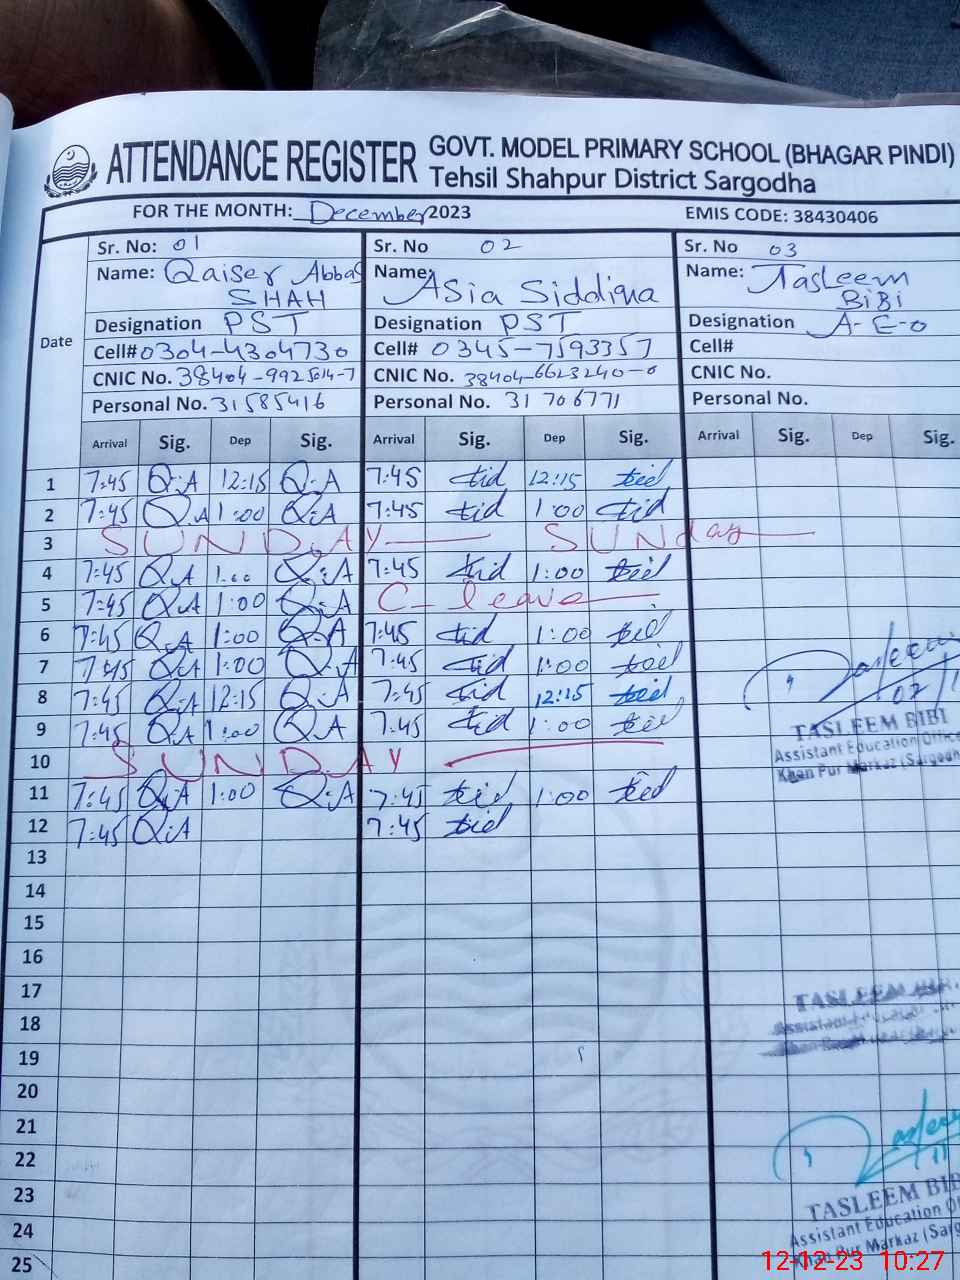 ATTENDANCE REGISTER GOVT. MODEL PRIMARY SCHOOL (BHAGAR PINDI)
Tehsil Shahpur District Sargodha
FOR THE MONTH: December 2023 EMIS CODE: 38430406
Date
Sr. No: 01 Sr. No 02 Sr. No 03
Name: Qaiser Abbas Name: Asia Siddiqa Name: Tasleem
SHAH BiBi
Designation PST Designation PST Designation A-E-O
Cell# 0304-4304730 Cell# 0345-7593357 Cell#
CNIC No. CNIC No. CNIC No.
Personal No. 31585416 Personal No. 31706771 Personal No.
Arrival Sig. Dep Sig. Arrival Sig. Dep Sig. Arrival Sig. Dep Sig.
1 7:45 Q.A 12:15 Q.A 7:45 12:15
2 7:45 Q.A 1:00 Q.A 7:45 1:00
3 SUNDAY SUNday
4 7:45 Q.A 1:00 Q.A 7:45 1:00
5 7:45 Q.A 1:00 Q.A C-leave
6 7:45 Q.A 1:00 Q.A 7:45 1:00
7 7:45 Q.A 1:00 Q.A 7:45 1:00
8 7:45 Q.A 12:15 Q.A 7:45 12:15
9 7:45 Q.A 1:00 Q.A 7:45 1:00
10 SUNDAY
11 7:45 Q.A 1:00 Q.A 7:45 1:00
12 7:45 Q.A 7:45
Tasleem
TASLEEM BIBI
Assistant Education Office
Khan Pur Markaz (Sargodh
13
14
15
16
17
18
TASLEEM
Assistant
19
20
21
22
23
24
25
TASLEEM BIB
Assistant Education O
Khan Pur Markaz (Sarg
12-12-23 10:27